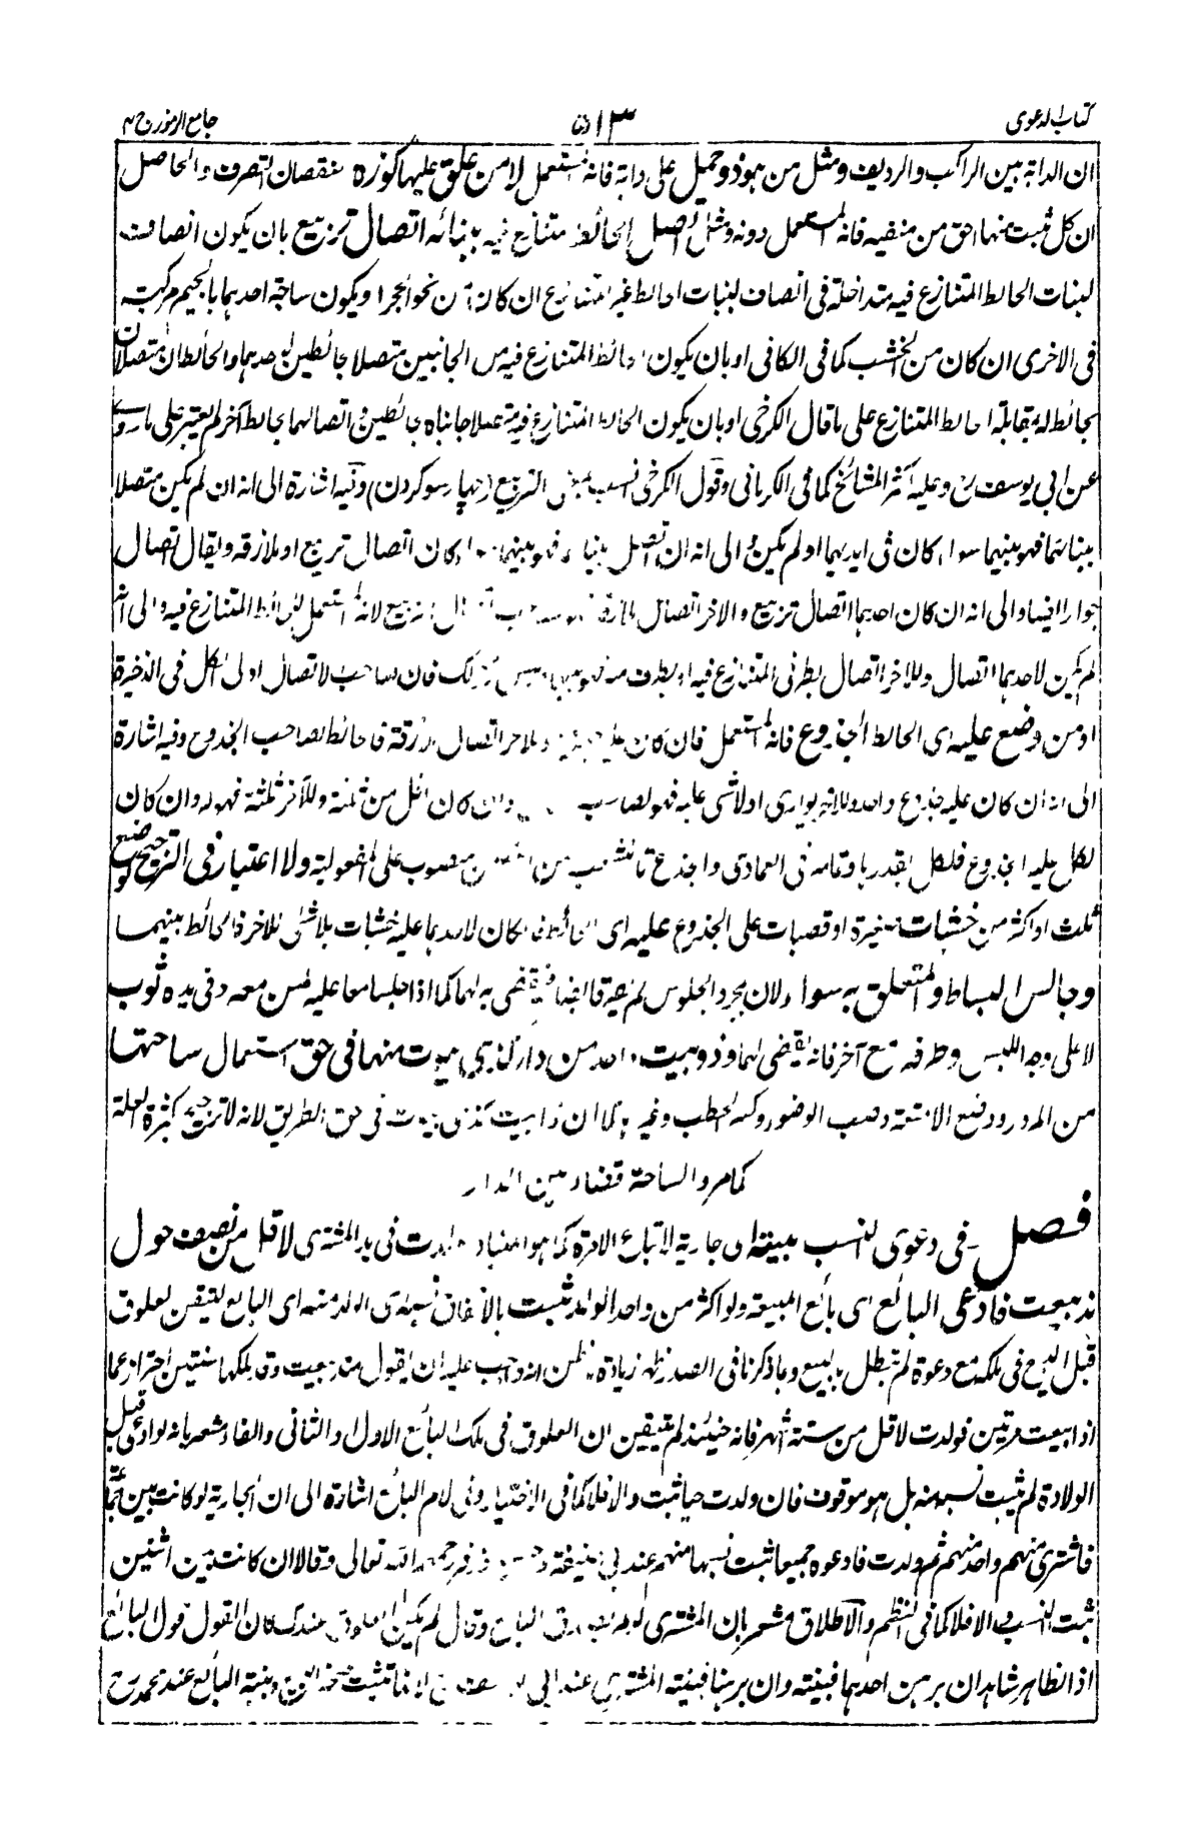 كتاب الدعوى
٥١٣
جامع الرموز ج ٣
ان الدابة بين الراكب والرديف ومثل من هو ذو حمل على دابة فانه مستعمل لا من علق عليها كوزه لنقصان التصرف والحاصل
ان كل مثبت منها احق من منفيه فانه المستعمل دونه ومثل اتصل الحائط المتنازع فيه ببنائه اتصال تربيع بان يكون انصاف
لبنات الحائط المتنازع فيه متداخلة فى انصاف لبنات الحائط غير المتنازع ان كان من نحو الحجر او يكون ساجة احديهما بالجيم مركبة
فى الاخرى ان كان من الخشب كما فى الكافى او بان يكون الحائط المتنازع فيه من الجانبين متصلا بحائطين لاحدهما والحائطان متصلان
بحائط له بمقابلة الحائط المتنازع على ما قال الكرخى او بان يكون الحائط المتنازع فيه متصلا جانباه بحائطين واتصالهما بحائط آخر لم يعتبر على ما روى
عن ابى يوسف رح وعليه اكثر المشائخ كما فى الكرمانى وقول الكرخى انسب بمعنى التربيع (چهار سو كردن) وفيه اشارة الى انه ان لم يكن متصلا
ببنائهما فهو بينهما سواء كان فى ايديهما او لم يكن والى انه ان اتصل ببنائهما فهو بينهما سواء كان اتصال تربيع او ملازقة ويقال اتصال
جوار ايضا والى انه ان كان لاحديهما اتصال تربيع والآخر اتصال ملازقة تربيع لانه المستعمل للحائط المتنازع فيه والى انه
لم يكن لاحدهما اتصال وللآخر اتصال بطرفى المتنازع فيه او بطرف منه فهو بينهما وليس كذلك فان صاحب الاتصال اولى الكل فى الذخيرة
او من وضع عليه اى الحائط الجذوع فانه المستعمل فان كان وللآخر اتصال ملازقة فالحائط لصاحب الجذوع وفيه اشارة
الى انه ان كان عليه جذوع واحد وللآخر بوارى او لا شىء عليه فهو لصاحب وان كان اقل من ثلثة وللآخر ثلثة فهو له وان كان
لكل عليه الجذوع فلكل بقدرها وتمامه فى العمادى والجذع منصوب على المفعولية ولا اعتبار فى الترجيح لوضع
ثلث او اكثر من خشبات صغيرة او قصبات على الجذوع عليه اى الحائط فلو كان لاحدهما عليه خشبات بلا شىء للآخر فالحائط بينهما
وجالس البساط والمتعلق به سواء ولان مجرد الجلوس لم يرجح فالبساط يقضى به لهما كما اذا جلسا معا عليه كمن معه وفى يده ثوب
لا على وجه اللبس وطرفه مع آخر فانه يقضى لهما وذو بيت واحد من دار كذى بيوت منها فى حق استعمال ساحتها
من المرور ووضع الامتعة وصب الوضوء وكسر الحطب وغيرها كما ان ذا بيت كذى بيوت فى حق الطريق لانه لا ترجيح بكثرة العلة
كما مر والساحة فضاء بين الدار
فصل فى دعوى النسب مبيعة اى جارية لا تباع الامرة كما هو المعتاد ولدت فى يد المشترى لاقل من نصف حول
مذ بيعت فادعى البائع اى بائع المبيعة ولو اكثر من واحد الولد ثبت بالاتفاق نسبه اى الولد منه اى البائع لتيقن العلوق
قبل البيع فى ملكه مع دعوة لم تبطل بالبيع وبما ذكرنا فى الصدر ظهر زيادة من انه وجب عليه ان يقول مذ بيعت وقد ملكها سنتين احترازا عما
اذا بيعت مرتين فولدت لاقل من ستة اشهر فانه حينئذ لم يتيقن ان العلوق فى ملك البائع الاول او الثانى والفاء مشعر بانه لو ادعى قبل
الولادة لم يثبت نسبه منه بل هو موقوف فان ولدت حيا ثبت والا فلا كما فى الاختيار وفى لام البائع اشارة الى ان الجارية لو كانت بين جماعة
فاشترى منهم واحد منهم ثم ولدت فادعوه جميعا ثبت نسبها منهم عند ابى حنيفة وزفر رحمهما الله تعالى وقالا ان كانت بين اثنين
ثبت النسب والا فلا كما فى النظم والاطلاق مشعر بان المشترى لو لم يصدق البائع وقال لم يكن العلوق عندك كان القول قول البائع
اذ الظاهر شاهد ان برهن احدهما فبينته وان برهنا فبينة المشترى عند ابى يوسف وبينة البائع عند محمد رح